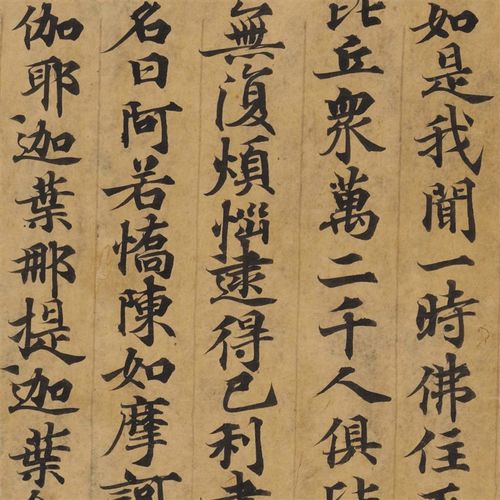 如是我聞一時佛住王
比丘衆萬二千人俱皆
無復煩惱逮得己利盡
名曰阿若憍陳如摩訶
伽耶迦葉那提迦葉